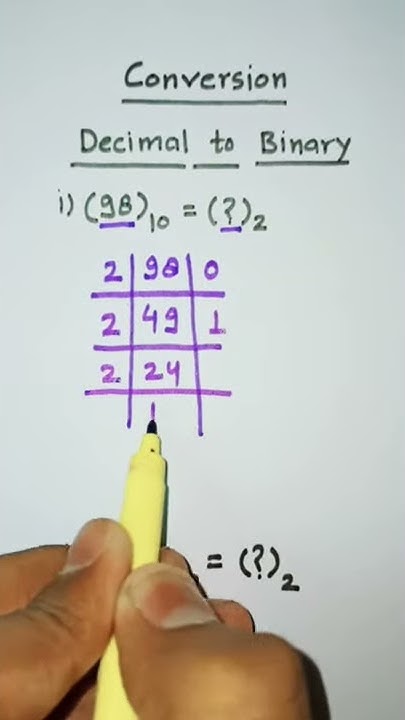 Conversion
Decimal to Binary
i) (98)10 = (?)2
2 98 0
2 49 1
2 24
1
= (?)2